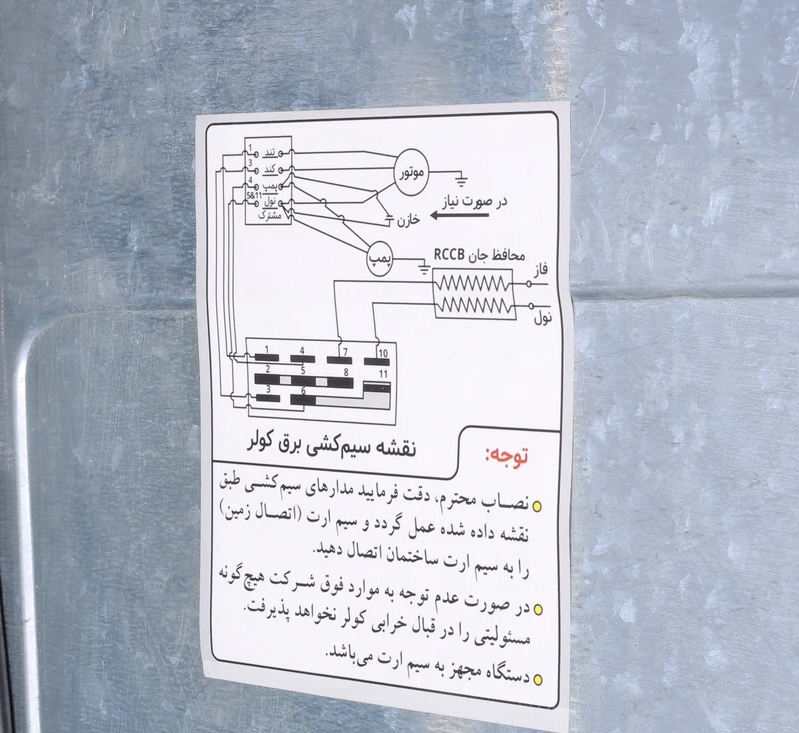 1 تند
3 کند
4 پمپ
5&11 نول
مشترک
موتور
در صورت نیاز
خازن
پمپ
محافظ جان RCCB
فاز
نول
1 4 7 10
2 5 8 11
3 6
نقشه سیم‌کشی برق کولر
توجه:
نصاب محترم، دقت فرمایید مدارهای سیم‌کشی طبق
نقشه داده شده عمل گردد و سیم ارت (اتصال زمین)
را به سیم ارت ساختمان اتصال دهید.
در صورت عدم توجه به موارد فوق شرکت هیچ‌گونه
مسئولیتی را در قبال خرابی کولر نخواهد پذیرفت.
دستگاه مجهز به سیم ارت می‌باشد.